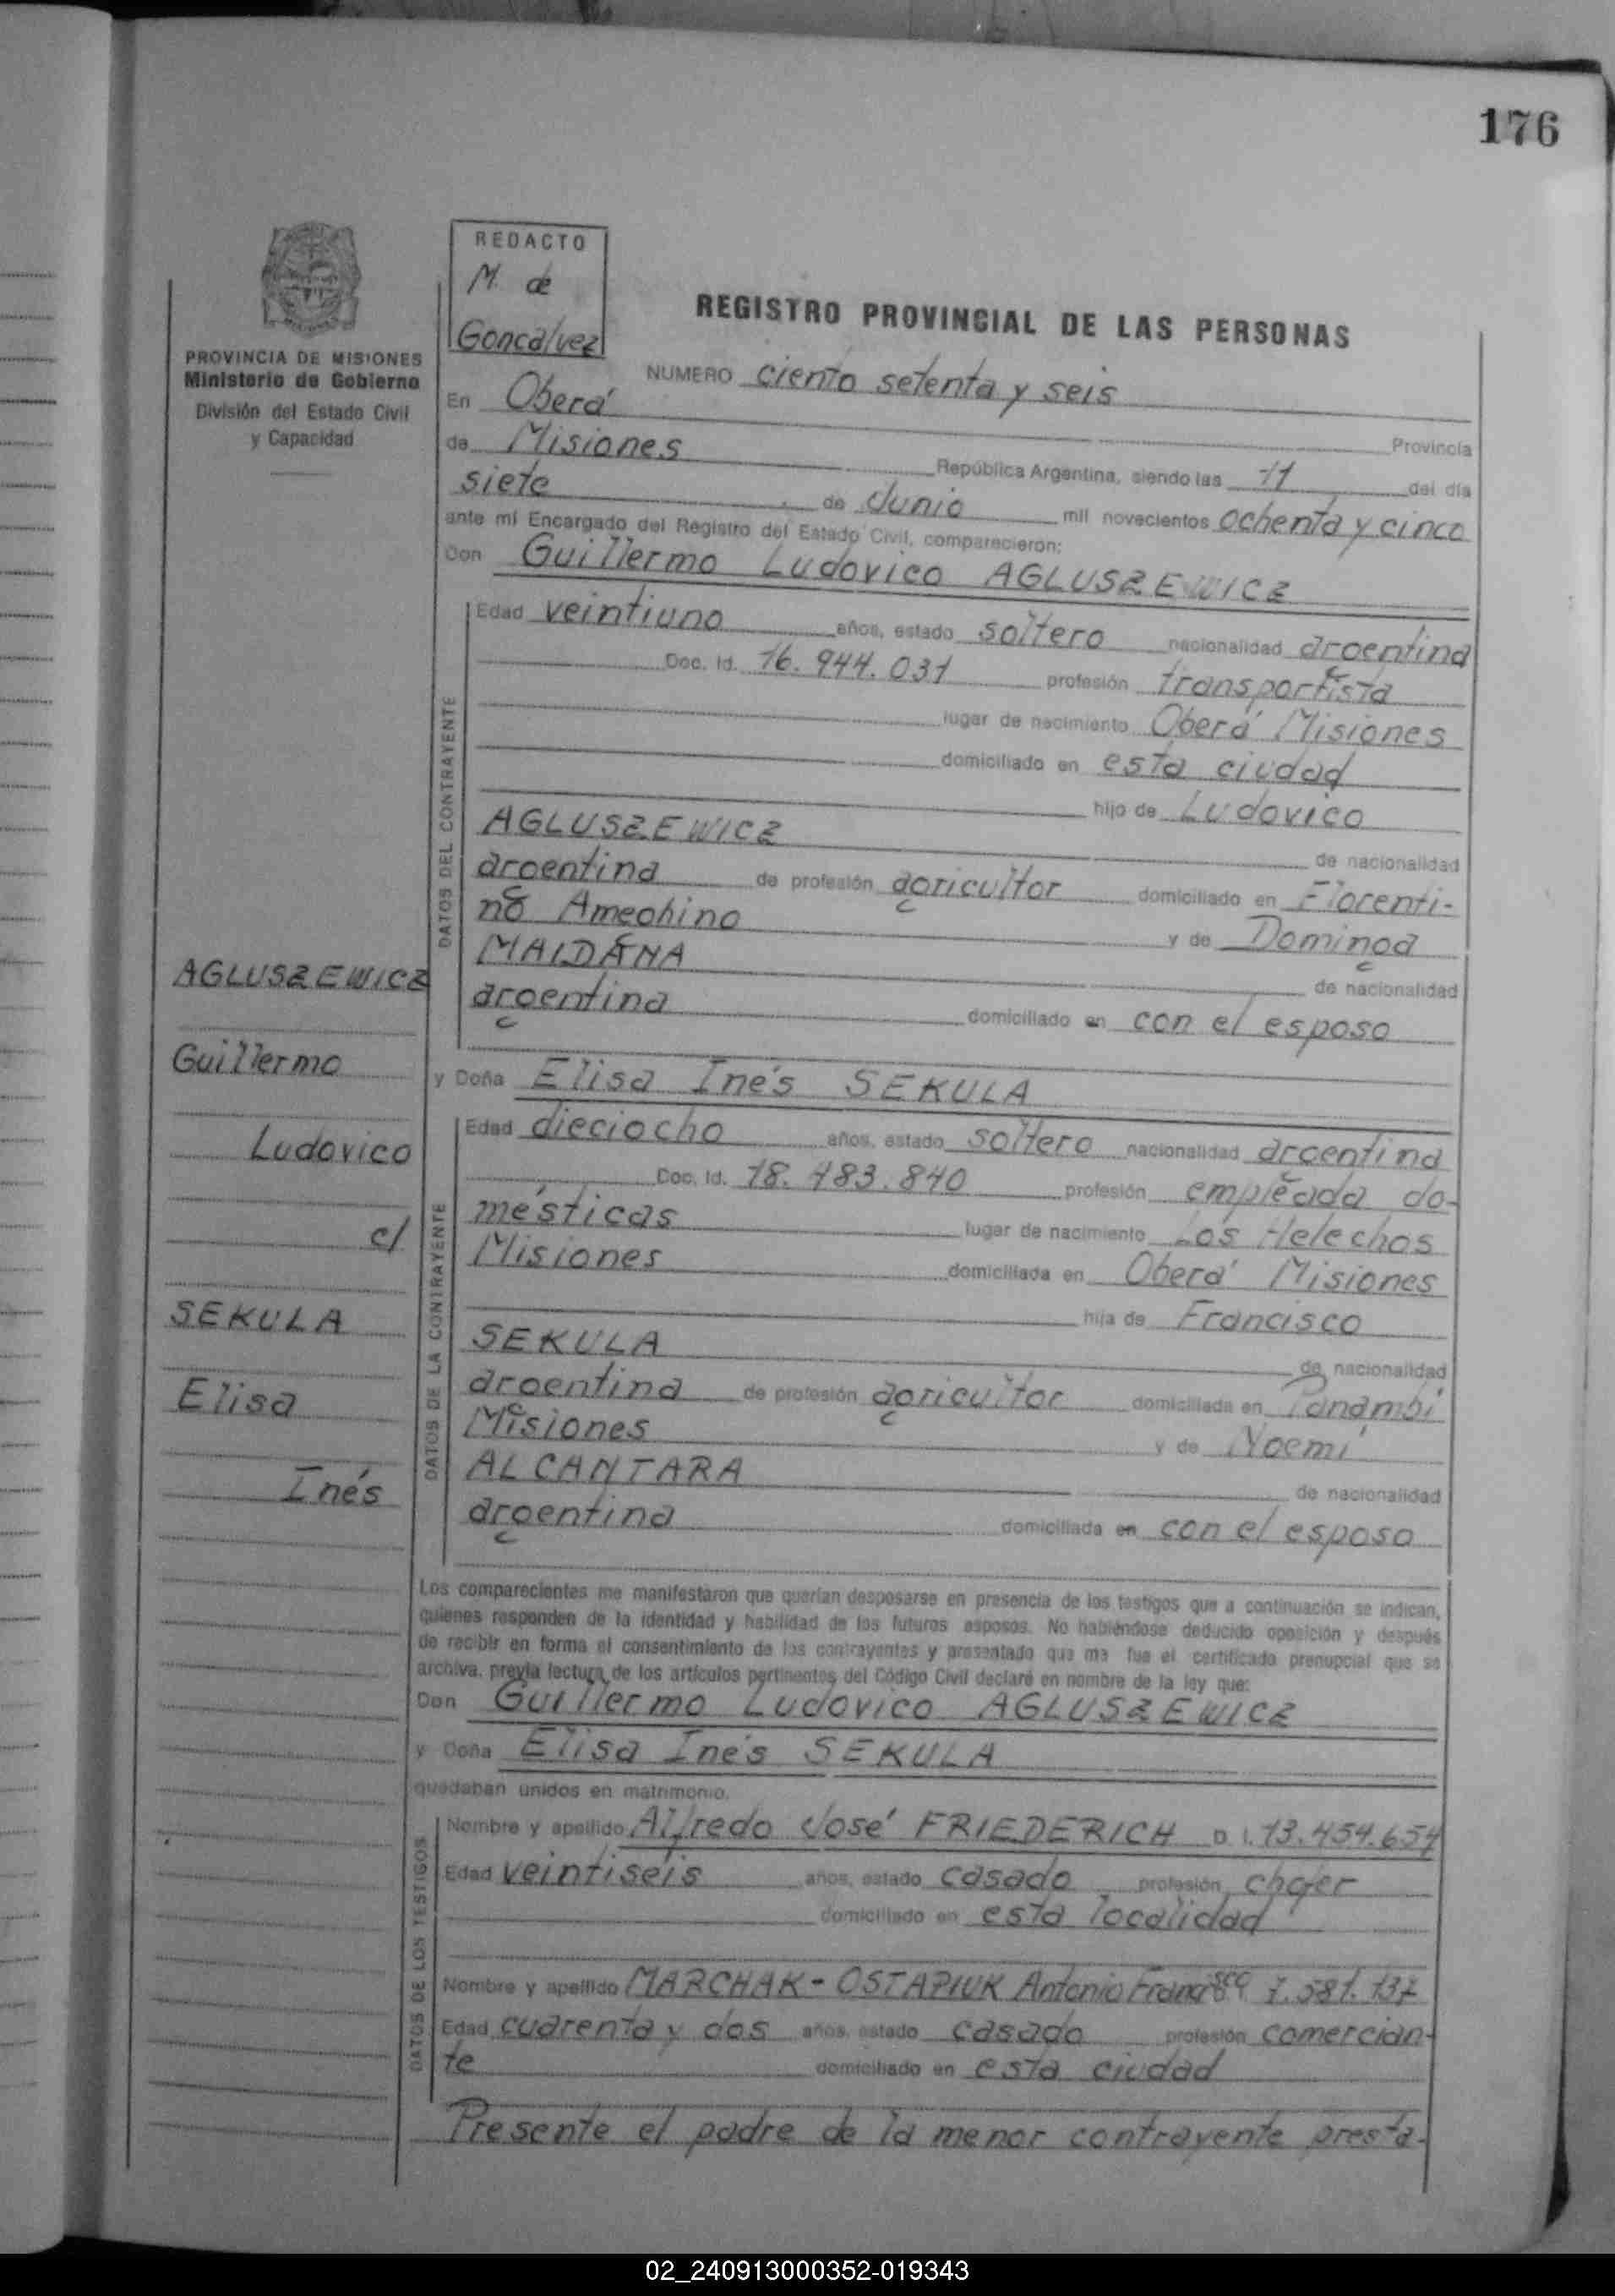 176
REDACTO
M. de
Goncalvez
PROVINCIA DE MISIONES
Ministerio de Gobierno
División del Estado Civil
y Capacidad
REGISTRO PROVINCIAL DE LAS PERSONAS
NUMERO ciento setenta y seis
En Oberá Provincia
de Misiones República Argentina, siendo las 11 del día
siete de Junio mil novecientos ochenta y cinco
ante mí Encargado del Registro del Estado Civil, comparecieron:
Don Guillermo Ludovico AGLUSZEWICZ
DATOS DEL CONTRAYENTE
Edad veintiuno años, estado soltero nacionalidad argentina
Doc. Id. 16.944.031 profesión transportista
lugar de nacimiento Oberá Misiones
domiciliado en esta ciudad
hijo de Ludovico
AGLUSZEWICZ de nacionalidad
argentina de profesión agricultor domiciliado en Florenti-
no Ameghino y de Dominga
MAIDANA de nacionalidad
argentina domiciliado en con el esposo
y Doña Elisa Inés SEKULA
DATOS DE LA CONTRAYENTE
Edad dieciocho años, estado soltero nacionalidad argentina
Doc. Id. 18.483.840 profesión empleada do-
mésticas lugar de nacimiento Los Helechos
Misiones domiciliada en Oberá Misiones
hija de Francisco
SEKULA de nacionalidad
argentina de profesión agricultor domiciliada en Panambí
Misiones y de Noemí
ALCANTARA de nacionalidad
argentina domiciliada en con el esposo
AGLUSZEWICZ
Guillermo
Ludovico
c/
SEKULA
Elisa
Inés
Los comparecientes me manifestaron que querían desposarse en presencia de los testigos que a continuación se indican,
quienes responden de la identidad y habilidad de los futuros esposos. No habiéndose deducido oposición y después
de recibir en forma el consentimiento de los contrayentes y presentado que me fue el certificado prenupcial que se
archiva, previa lectura de los artículos pertinentes del Código Civil declaré en nombre de la ley que:
Don Guillermo Ludovico AGLUSZEWICZ
y Doña Elisa Inés SEKULA
quedaban unidos en matrimonio.
DATOS DE LOS TESTIGOS
Nombre y apellido Alfredo José FRIEDERICH D. I. 13.454.654
Edad veintiseis años, estado casado profesión chofer
domiciliado en esta localidad
Nombre y apellido MARCHAK - OSTAPIUK Antonio Francisco 7.581.137
Edad cuarenta y dos años, estado casado profesión comercian-
te domiciliado en esta ciudad
Presente el padre de la menor contrayente presta-
02_240913000352-019343